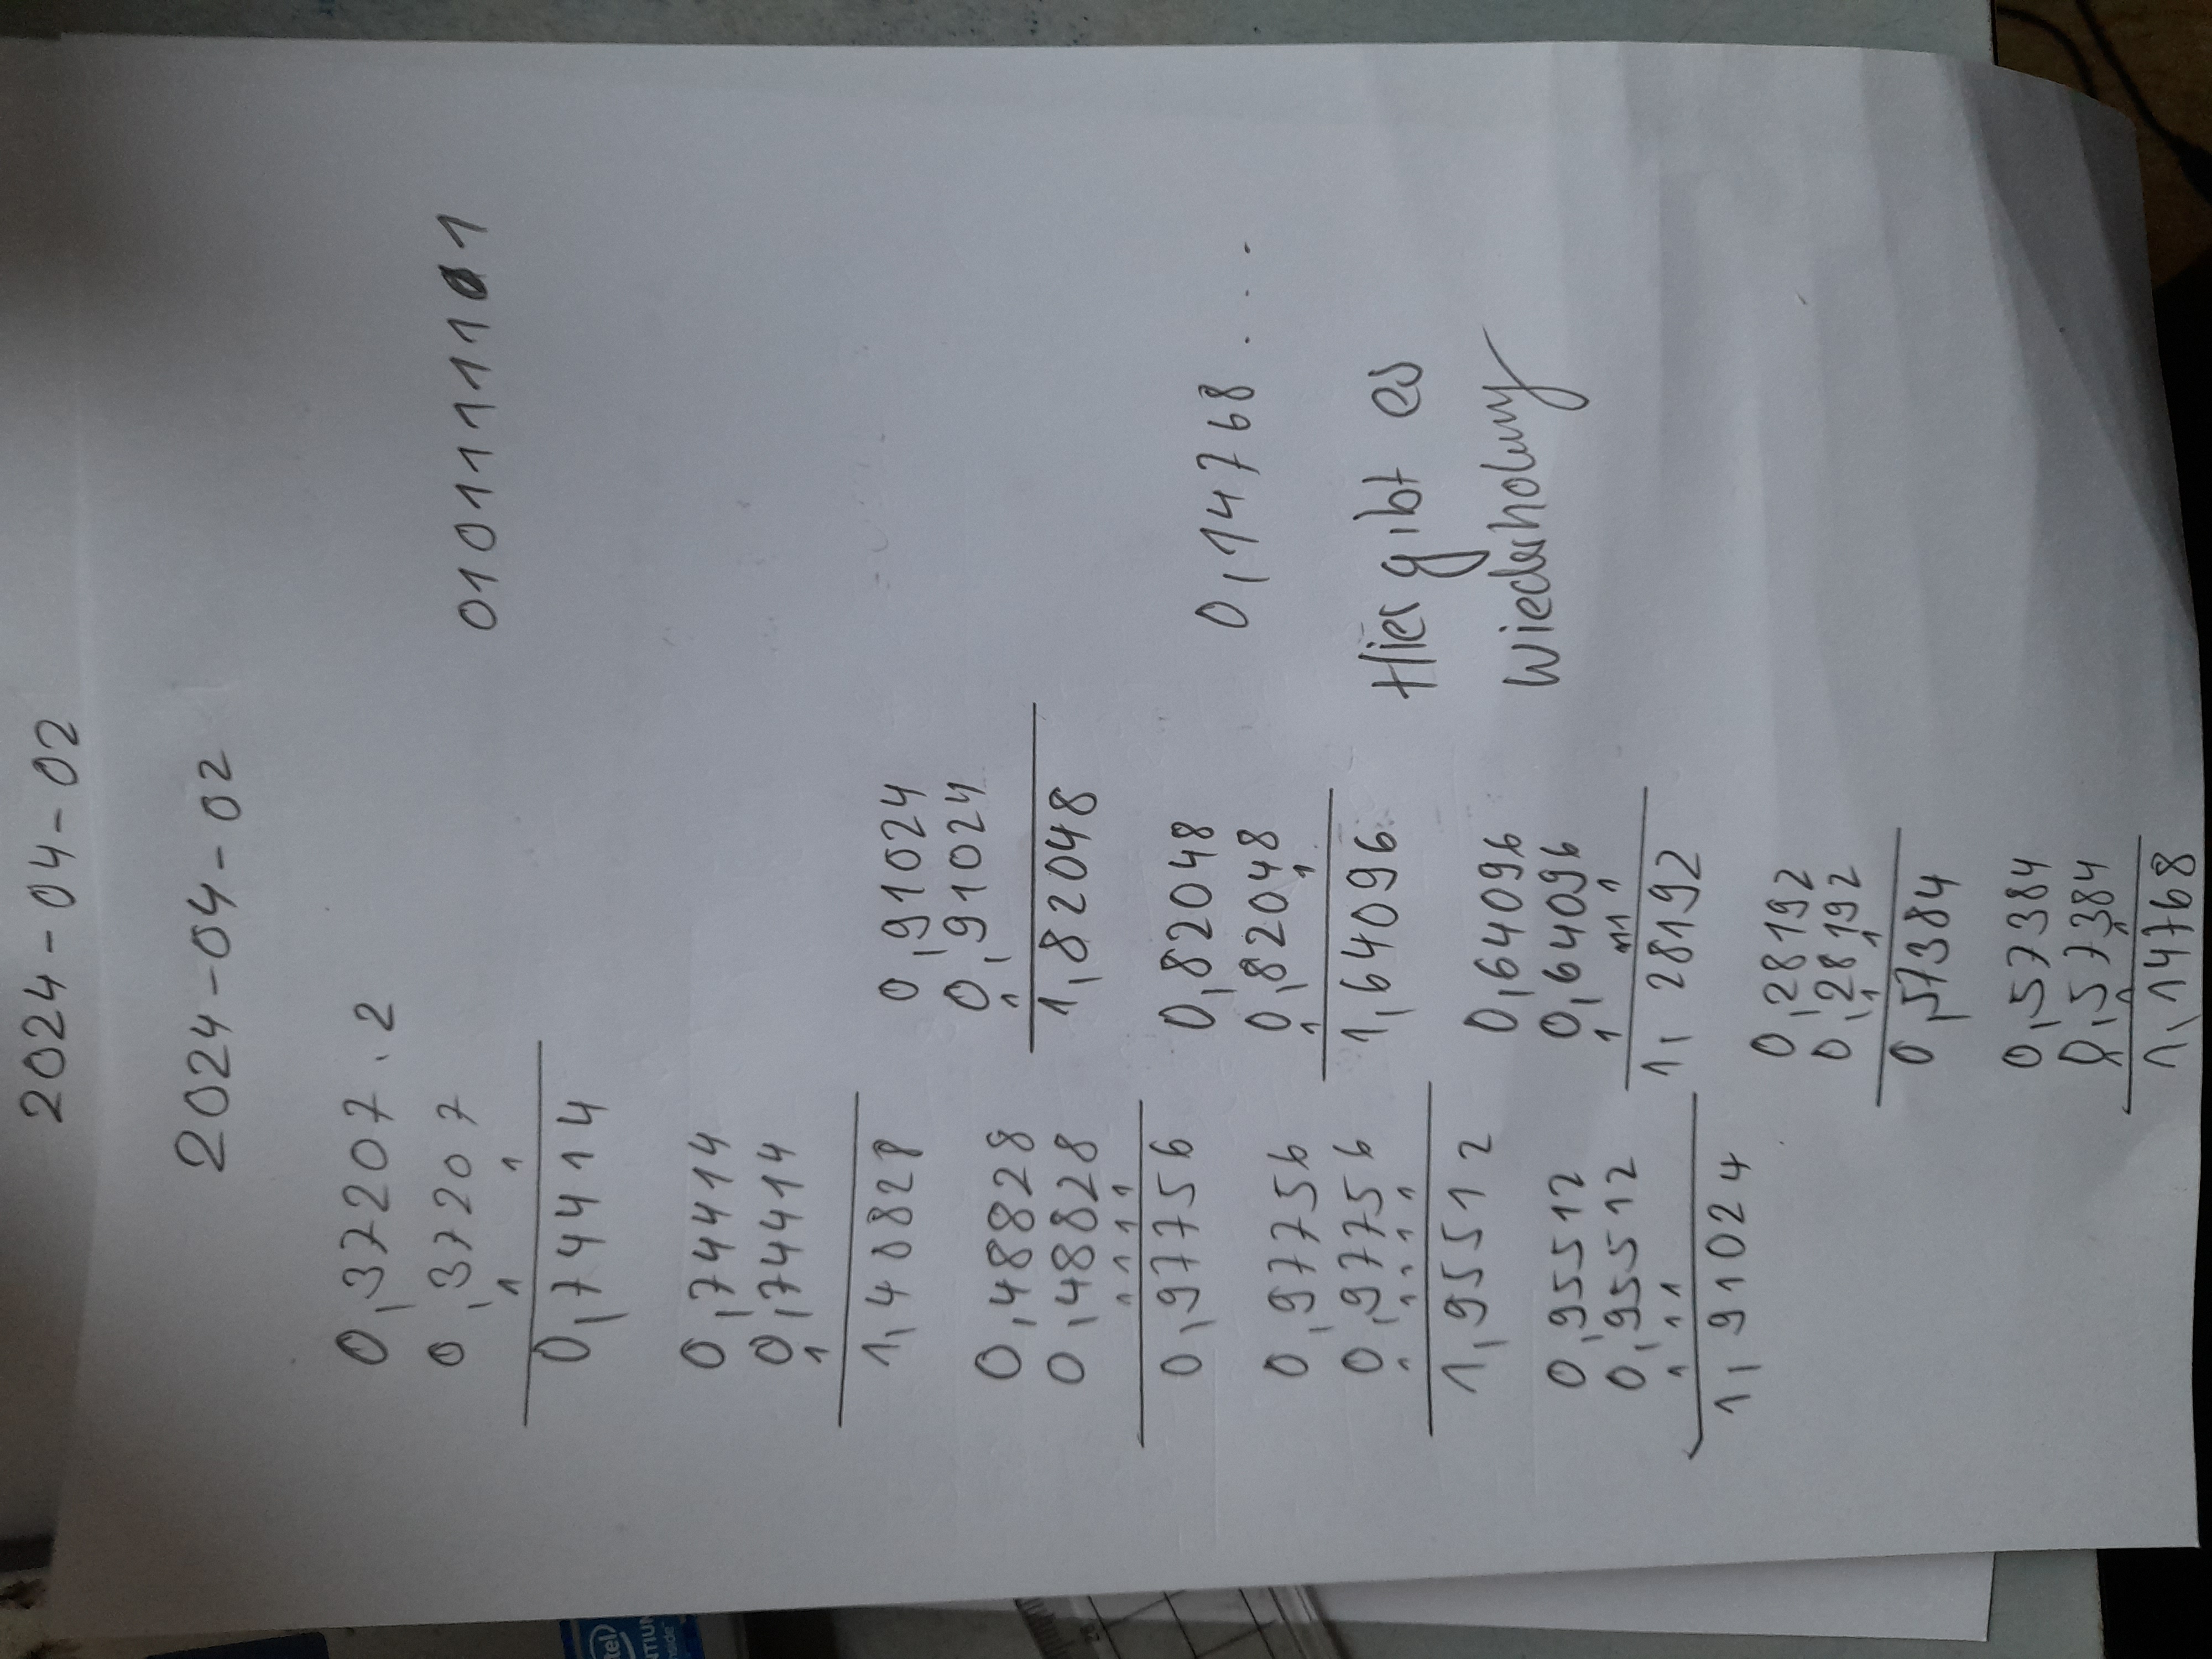 2024-04-02
2024-04-02
0,37207.2
0,37207
1 1
0,74414
0101111101
0,74414
0,74414
1
1,48828
0,48828
0,48828
1 1 1 1
0,97756
0,97756
0,97756
1 1 1 1 1
1,95512
0,95512
0,95512
1 1 1
1,91024
0,91024
0,91024
1
1,82048
0,82048
0,82048
1 1
1,64096
0,64096
0,64096
1 1 1
1,28192
0,28192
0,28192
1 1
0,57384
0,57384
0,57384
1,14768
0,14768 ....
Hier gibt es
Wiederholung